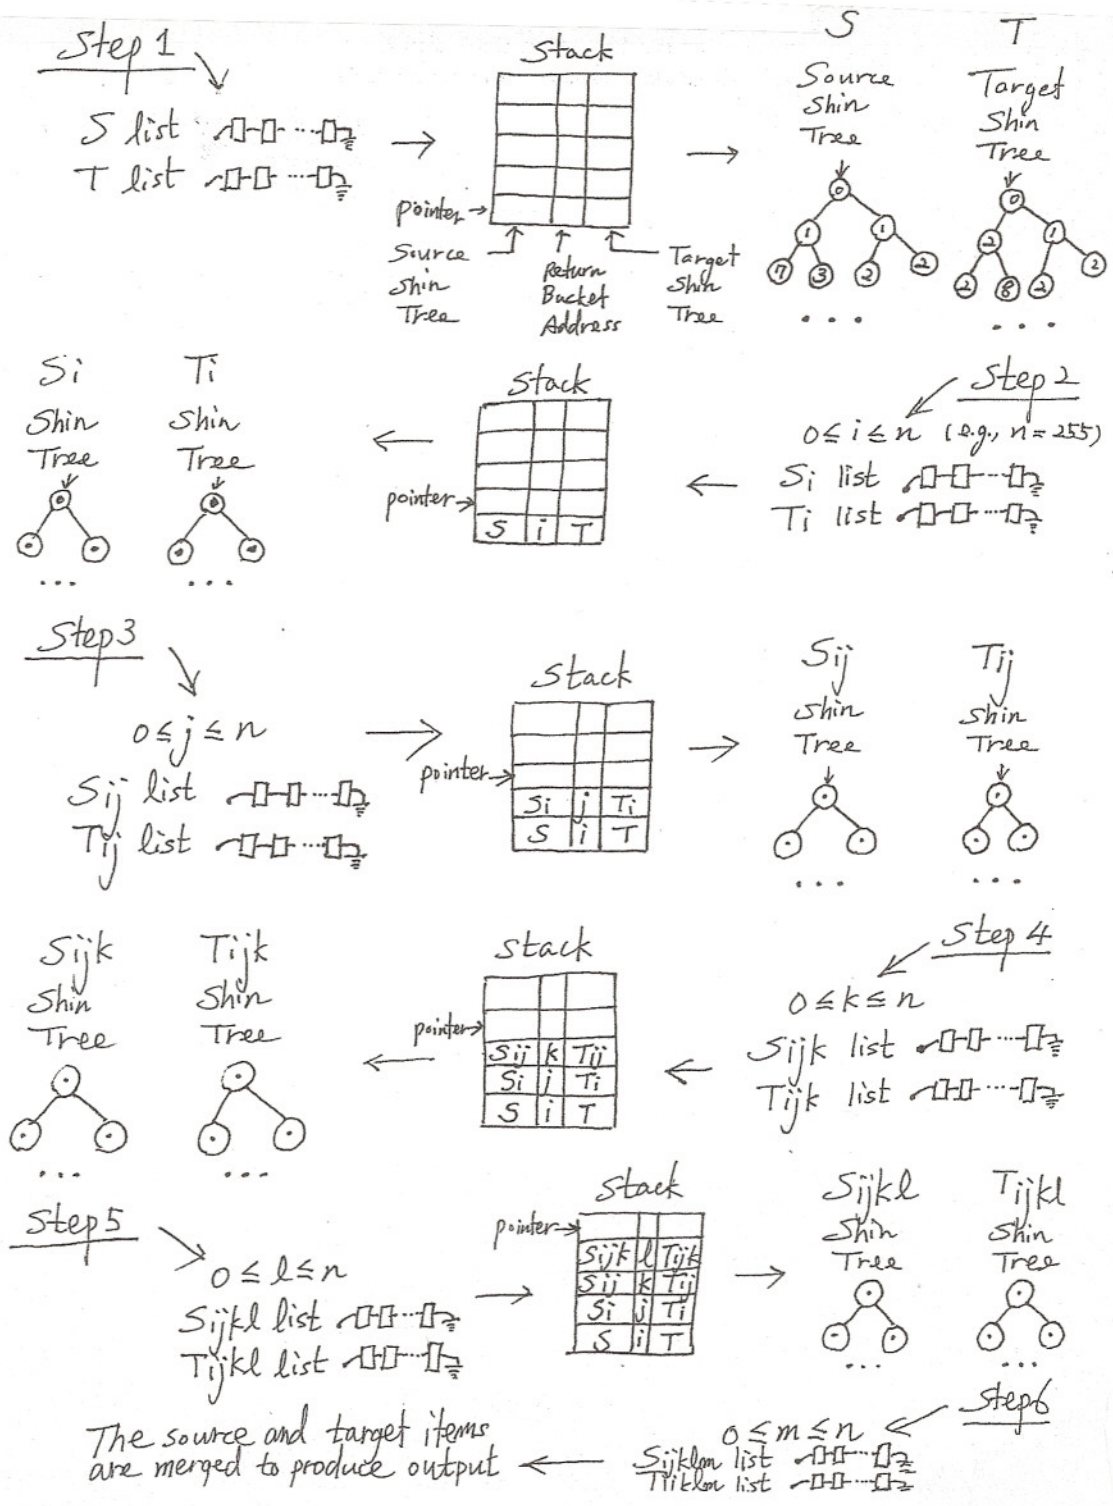 Step 1
S list
T list
Stack
pointer
Source Shin Tree
Return Bucket Address
Target Shin Tree
S
Source
Shin
Tree
0
1 1
7 3 2 2
...
T
Target
Shin
Tree
0
2 1
2 8 2 2
...
Step 2
0 ≤ i ≤ n (e.g., n = 255)
Si list
Ti list
Stack
pointer
S i T
Si
Shin
Tree
...
Ti
Shin
Tree
...
Step 3
0 ≤ j ≤ n
Sij list
Tij list
Stack
pointer
Si j Ti
S i T
Sij
Shin
Tree
...
Tij
Shin
Tree
...
Step 4
0 ≤ k ≤ n
Sijk list
Tijk list
Stack
pointer
Sij k Tij
Si j Ti
S i T
Sijk
Shin
Tree
...
Tijk
Shin
Tree
...
Step 5
0 ≤ l ≤ n
Sijkl list
Tijkl list
Stack
pointer
Sijk l Tijk
Sij k Tij
Si j Ti
S i T
Sijkl
Shin
Tree
...
Tijkl
Shin
Tree
...
Step 6
0 ≤ m ≤ n
Sijklm list
Tijklm list
The source and target items
are merged to produce output